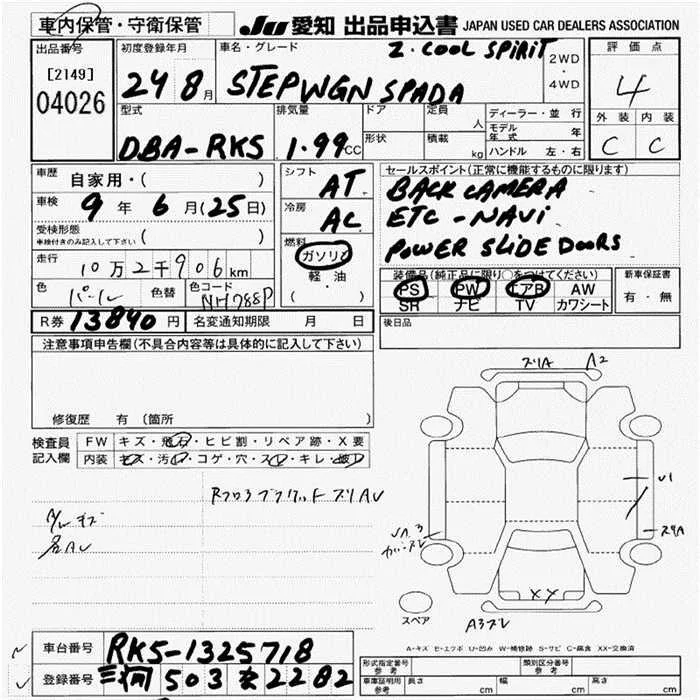 車内保管・守衛保管
JU 愛知 出品申込書 JAPAN USED CAR DEALERS ASSOCIATION
出品番号
[2149]
04026
初度登録年月
24 8月
車名・グレード
Z・COOL SPIRIT
STEPWGN SPADA
2WD
・
4WD
評価点
4
外装 内装
C C
型式
DBA-RK5
排気量
1.99CC
ドア
定員
人
形状
積載
kg
ディーラー・並行
モデル年式 年
ハンドル 左・右
車歴
自家用・( )
車検
9年 6月(25日)
受検形態
車検付きのみ記入して下さい ( )
走行
10万2千906km
色
パール
色替
色コード
NH788P
シフト
AT
冷房
AC
燃料
ガソリン
軽・油
( ・ )
セールスポイント(正常に機能するものに限ります)
BACK CAMERA
ETC - NAVi
POWER SLIDE DOORS
装備品(純正品に限り○をつけてください)
PS PW エアB AW
SR ナビ TV カワシート
新車保証書
有・無
R券 13840円 名変通知期限 月 日
後日品
注意事項申告欄(不具合内容等は具体的に記入して下さい)
修復歴 有 (箇所 )
検査員記入欄
FW キズ・飛石・ヒビ割・リペア跡・X要
内装 キズ・汚れ・コゲ・穴・スレ・キレ・破れ
ズリA A2
A3
スペア
XX
A-キズ E-エクボ U-凹み W-補修跡 S-サビ C-腐食 XX-交換済
車台番号 RK5-1325718
登録番号 三河 503 2282
形式指定番号
参考
類別区分番号
参考
車庫証明用
参考
長さ cm
幅 cm
高さ cm